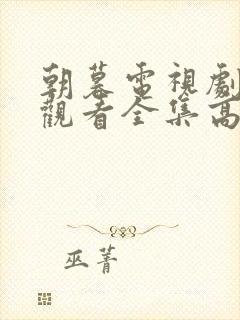 朝暮電視劇
觀看全集高
巫菁